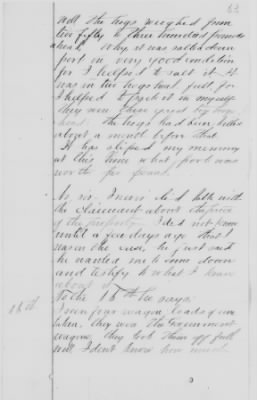 63
well the hogs weighed from
two fifty to three hundred pounds
ahead, Why it was salted down
pork in very good condition
for I helped to salt it. It
was in two hogs heads full, for
I helped to pack it in myself
they were three great big hogs
head. The hogs had been killed
about a month before that.
It has sliped my memory
at this time what pork was
worth per pound.
No sir I never had talk with
the claimant about
of the property. I did not know
until a few days ago that
was in the case, he just said
he wanted me to come down
and testify to what I knew
about it.
18th
To the 18th he says.
I saw four wagon loads of corn
taken. they was the Government
wagons, they took them off full
well I don't know how much